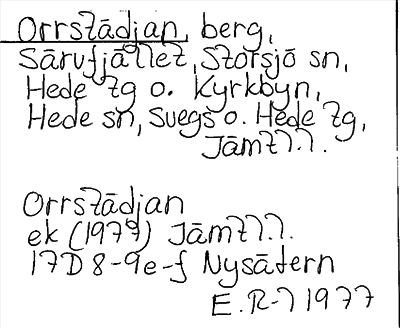 Orrstädjan, berg,
Särvfjället, Storsjö sn,
Hede tg o. Kyrkbyn,
Hede sn, Svegs o. Hede tg,
Jämtl.l.
Orrstädjan
ek (1977) Jämtl.l.
17D 8-9e-f Nysätern
E.R-l 1977